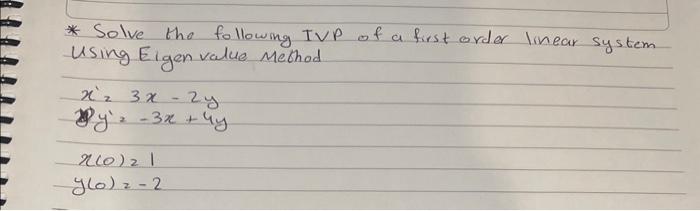 * Solve the following IVP of a first order linear system
Using Eigen value Method
x' = 3x - 2y
y' = -3x + 4y
x(0) = 1
y(0) = -2